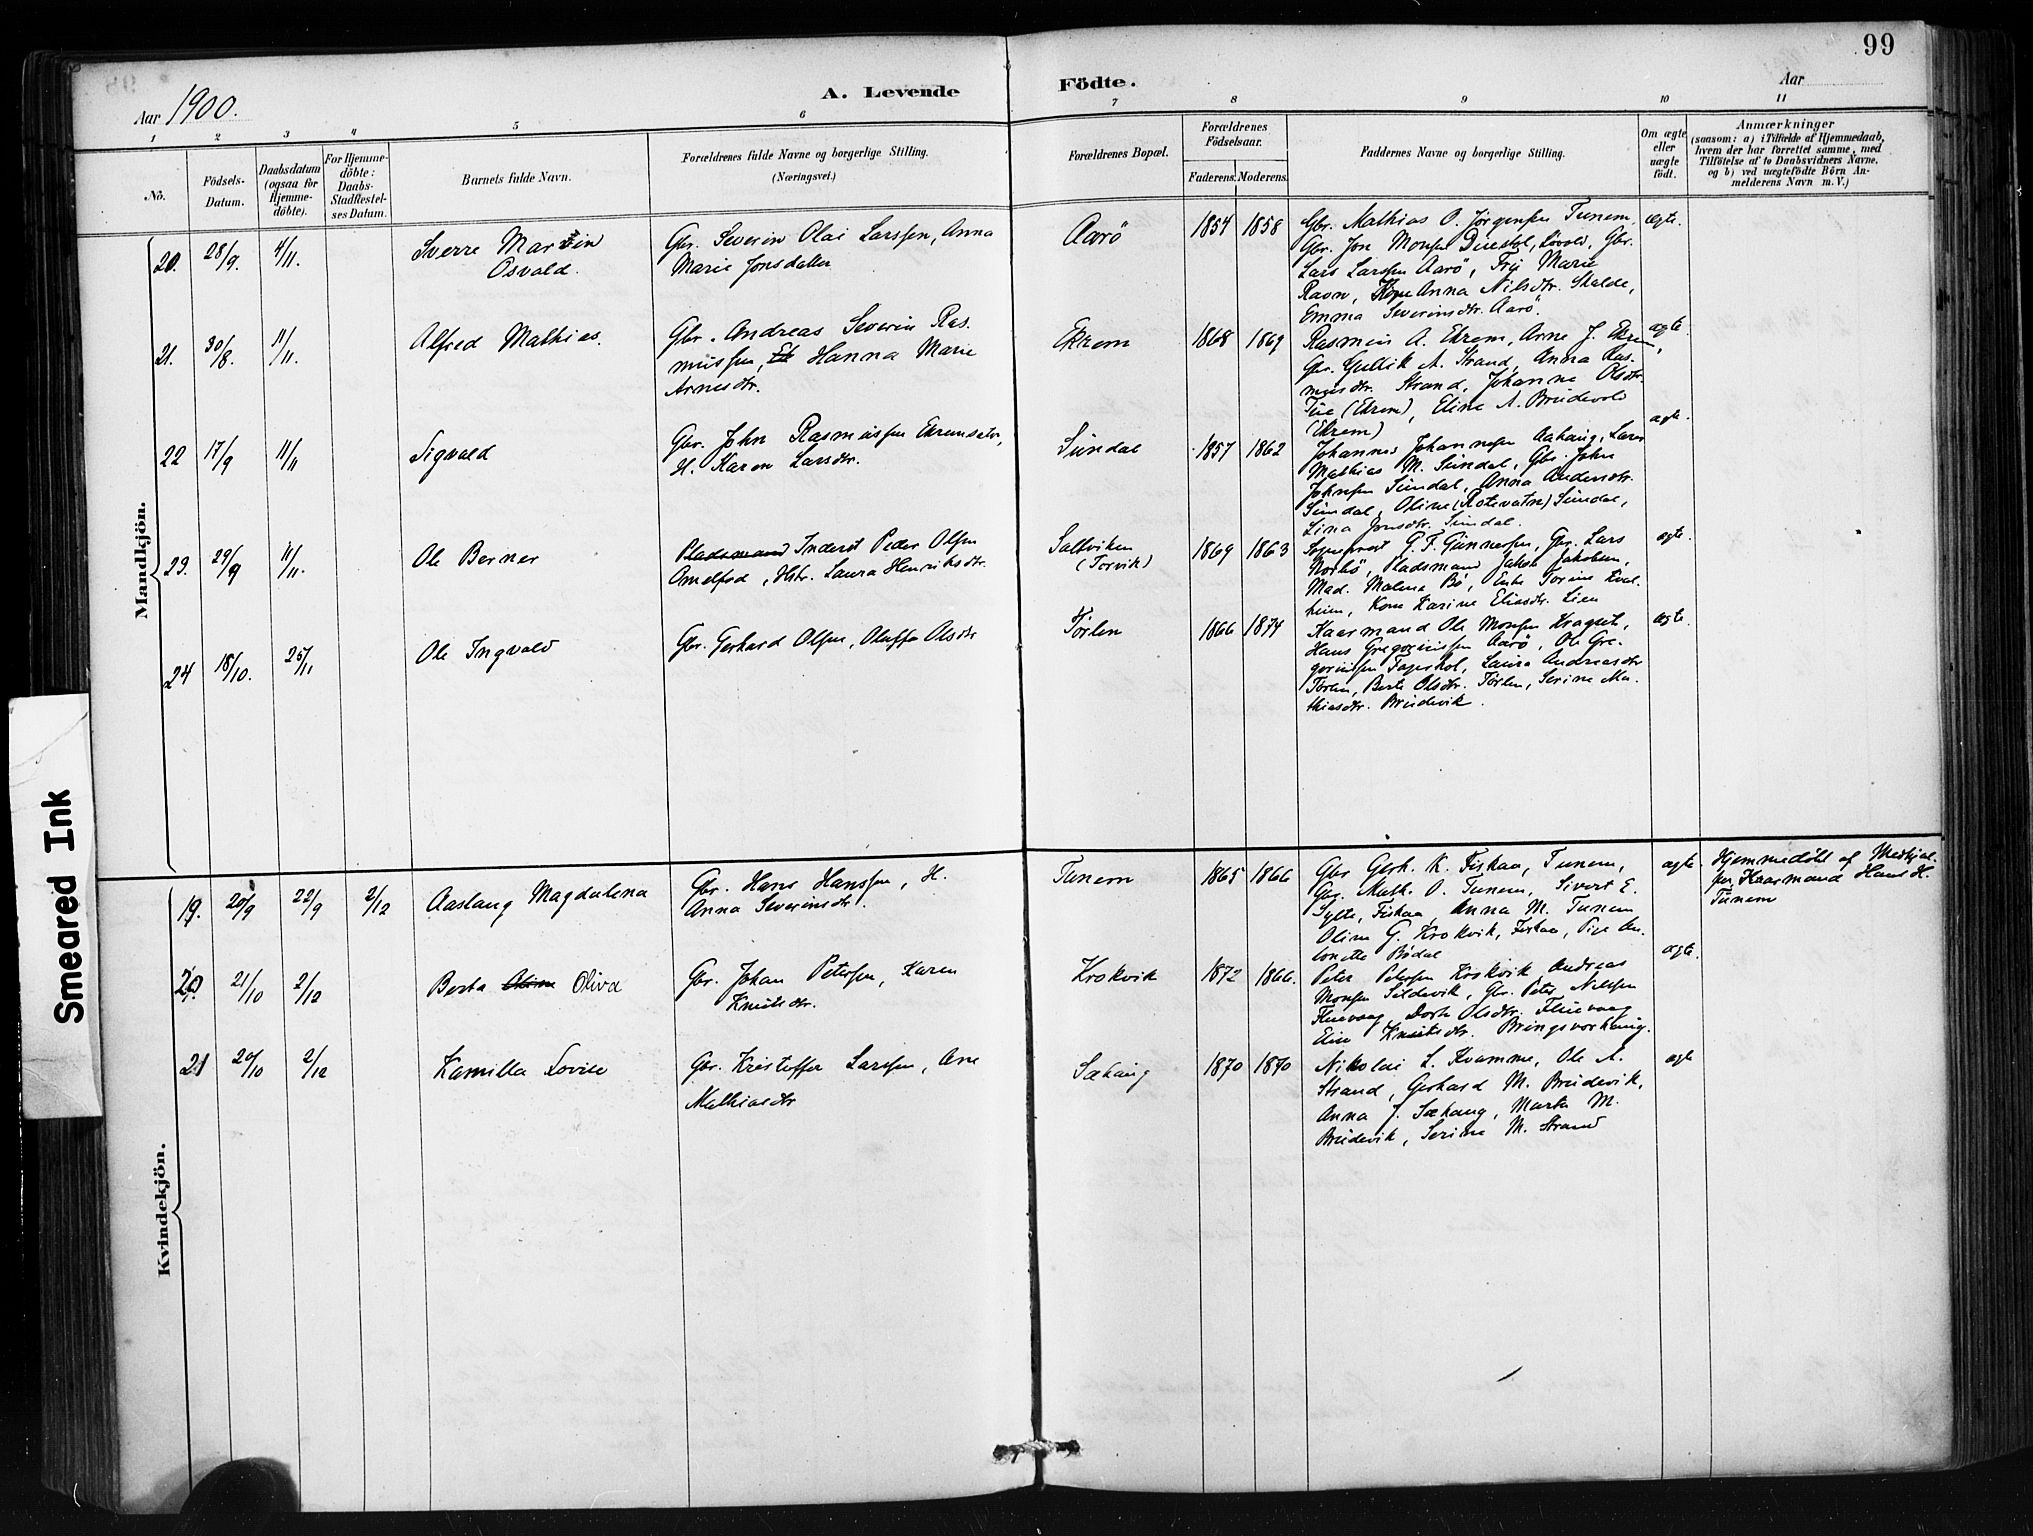 99
Aar 1900.
A. Levende Födte.
Aar
1 2 3 4 5 6 7 8 9 10 11
No.
Födsels-Datum.
Daabsdatum (ogsaa for Hjemmedöbte).
For Hjemmedöbte: Daabs-Stadfestelses Datum.
Barnets fulde Navn.
Forældrenes fulde Navne og borgerlige Stilling.
(Næringsvei.)
Forældrenes Bopæl.
Forældrenes Födselsaar.
Faderens. Moderens.
Faddernes Navne og borgerlige Stilling.
Om ægte eller uægte födt.
Anmærkninger
(saasom: a) i Tilfælde af Hjemmedaab,
hvem der har forrettet samme, med
Tilföielse af to Daabsvidners Navne,
og b) ved uægtefödte Börn An-
melderens Navn m. V.)
Mandkjön.
20. 28/9. 4/11. Sverre Martin Osvald. Gbr. Severin Olai Larssen, Anna
Marie Jonsdatter Aarö 1854 1858 ægte.
Gbr. Mathias O. Jørgensen Tunem,
Gbr. Jon Monsen Lövold, Gbr.
Lars Larssen Aarö, Marie
Ravn, Kone Anna Nilsdtr. Skalde,
Emma Severinsdtr. Aarö.
21. 30/8. 11/11. Alfred Mathias. Gbr. Andreas Severin Ras-
mussen, Hanna Marie
Arnesdtr. Ekrem 1868 1869 ægte.
Rasmus A. Ekrem, Arne J. Ekrem,
Gbr. Gullik A. Strand, Anna Ras-
musdtr. Strand, Johanne Olsdtr.
(Ekrem), Eline A. Brudevold
(Ekrem)
22 17/9 11/11 Sigvald Gbr. John Rasmussen Ekremsæter,
H. Karen Larsdtr. Sundal 1857 1862 ægte.
Johannes Johannesen Aahaug, Lars
Mathias M. Sundal, Gbr. John
Johnsen Sundal, Anna Andersdtr.
Sundal, Oline (Rotevatn) Sundal,
Lina Jonsdtr. Sundal.
23. 29/9 11/11. Ole Berner Pladsmand Inderst Peder Olsen
Amelfod, Hstr. Laura Henriksdtr. Saltviken
(Torvik) 1869 1863 ægte.
Sogneprest G. F. Gunnersen, Gbr. Lars
Norbö, Pladsmand Jakob Jakobsen,
Mad. Malene Bö, Enke Torine
heim, Kone Karine Eliasdtr. Lien
24 18/10. 25/11 Ole Ingvald Gbr. Gerhard Olsen, Oluffa Olsdtr Tørlen 1866 1874 ægte.
Kaarmand Ole Monsen Kragset,
Hans Gregoriussen Aarö, Ole Gre-
goriussen Fagerhol, Laura Andreasdtr
Tørlen, Berte Olsdtr. Tørlen, Serine Ma-
thiasdtr. Brudevik.
Kvindekjön.
19. 20/9 22/9 2/12 Aaslaug Magdalena Gbr. Hans Hanssen, H.
Anna Severinsdtr. Tunem 1865 1866 ægte.
Gbr Gerh. K. Fiskaa, Tunem,
Gbr. Math. O. Tunem, Sivert E.
Sylte, Fiskaa, Anna M. Tunem
Oline G. Krokvik, Fiskaa, Pige An-
tonette Bødal
Hjemmedöbt af Medhjæl-
per Kaarmand Hans H.
Tunem
20 21/10 2/12 Berta Oline Oliva Gbr. Johan Petersen, Karen
Knutsdtr. Krokvik 1872 1866. ægte.
Peter Petersen Krokvik, Andreas
Monsen Sildevik, Gbr. Peter Nilssen
Fluevaag, Dorte Olsdtr. Fluevaag
Eline Knutsdtr. Bringsvorhaug.
21 20/10 2/12 Kamilla Lovise Gbr. Kristoffer Larssen, Ane
Mathiasdtr Sæhaug 1870 1870 ægte
Nikolai L. Kvamme, Ole A.
Strand, Gerhard M. Brudevik,
Anna J. Sæhaug, Marta M.
Brudevik, Serine M. Strand
Smeared Ink